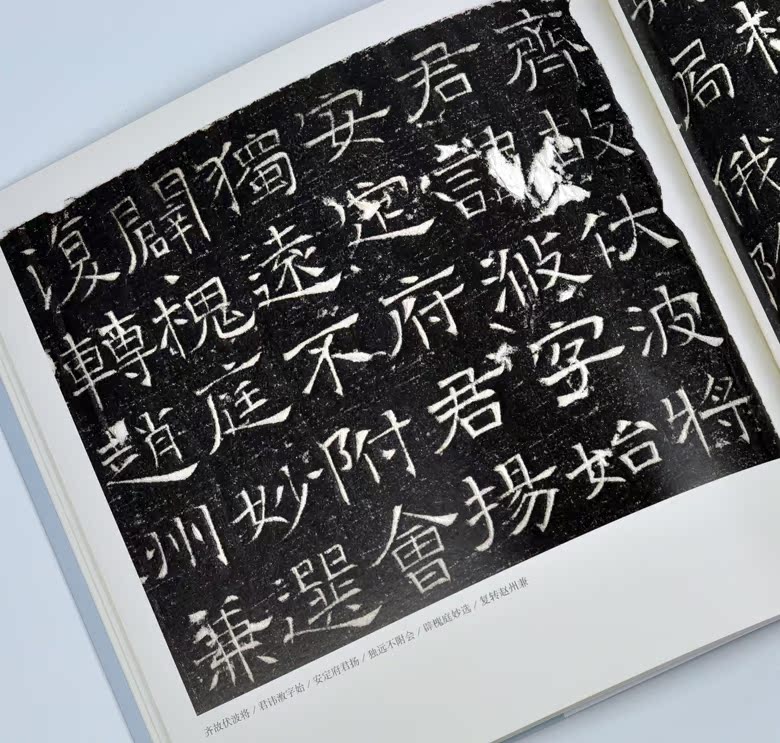 齊故伏波將
君諱字始
安定府君揚
獨遠不附會
闢槐庭妙選
復轉趙州兼
齐故伏波将 / 君讳字始 / 安定府君扬 / 独远不附会 / 辟槐庭妙选 / 复转赵州兼
局俄